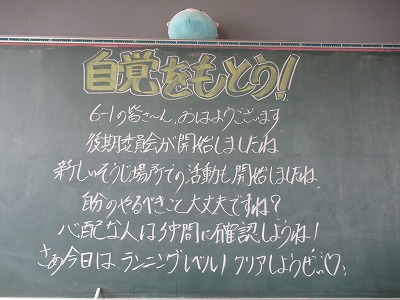 自覚をもとう!
6-1の皆さ〜ん、おはようございます
後期委員会が開始しましたね
新しいそうじ場所での活動も開始しましたね、
自分のやるべきこと大丈夫ですね?
心配な人は仲間に確認しようね!
さあ今日は、ランニングレベル1クリアしようぜ〜♡